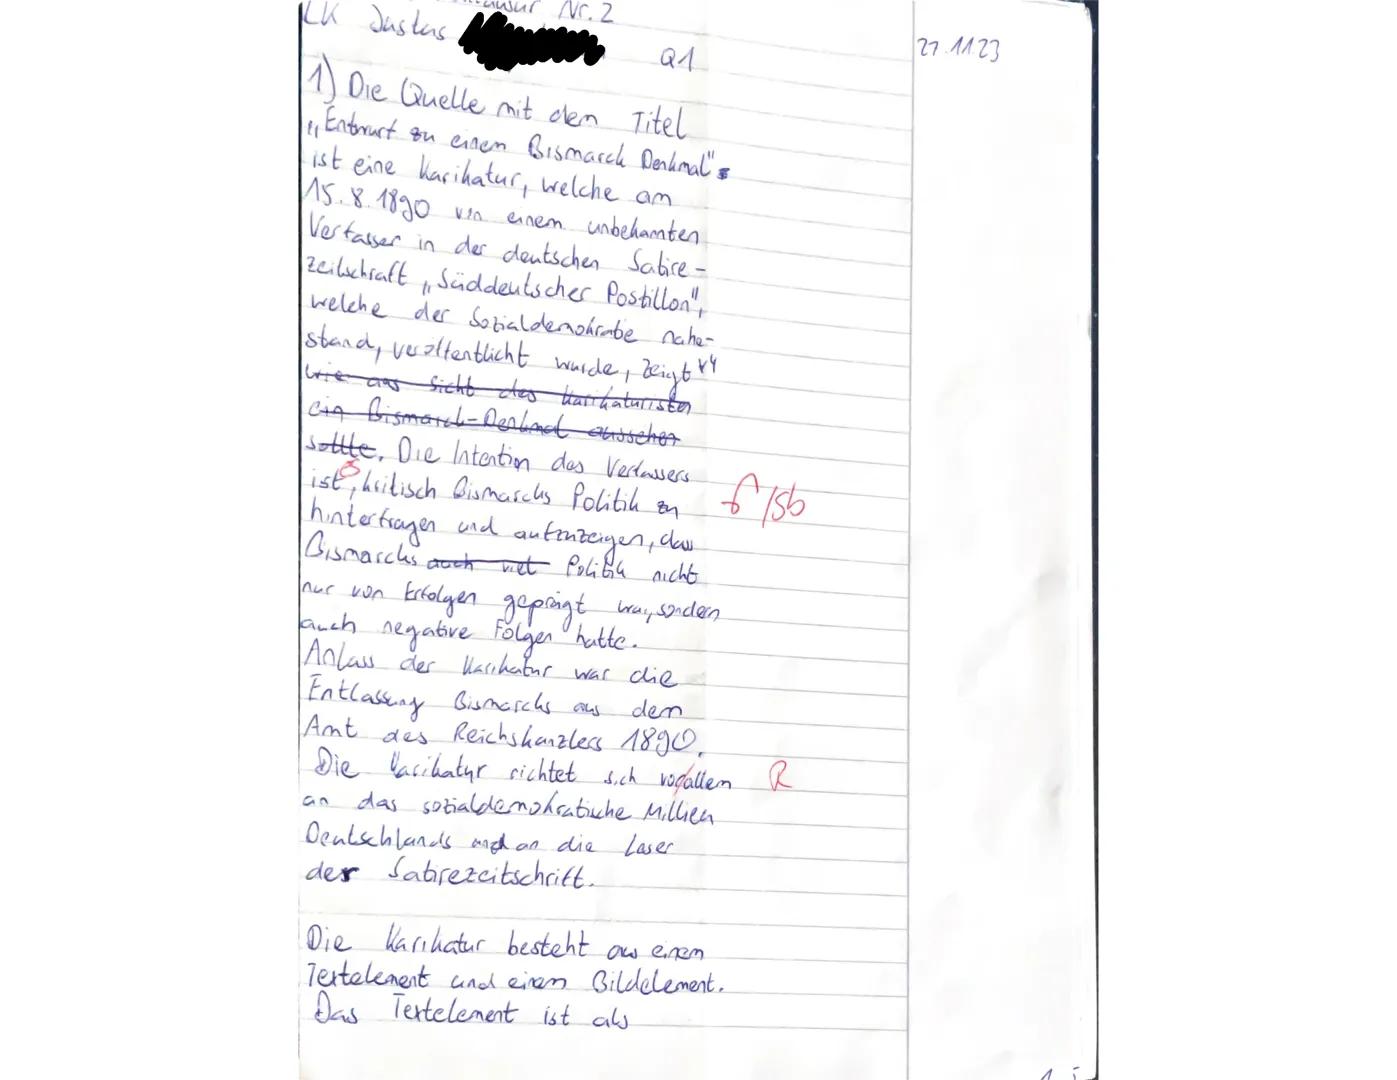 Klausur Nr. 2
LK Justus
Q1
27.11.23
1) Die Quelle mit dem Titel
"Entwurf zu einem Bismarck Denkmal"
ist eine Karikatur, welche am
15.8.1890 von einem unbekannten
Verfasser in der deutschen Satire-
zeitschrift "Süddeutscher Postillon",
welche der Sozialdemokratie nahe-
stand, veröffentlicht wurde, zeigt
wie aus Sicht des Karikaturisten
ein Bismarck-Denkmal aussehen
sollte. Die Intention des Verfassers
ist, kritisch Bismarcks Politik zu
hinterfragen und aufzuzeigen, dass
Bismarcks auch viel Politik nicht
nur von Erfolgen geprägt war, sondern
auch negative Folgen hatte.
Anlass der Karikatur war die
Entlassung Bismarcks aus dem
Amt des Reichskanzlers 1890.
Die Karikatur richtet sich vor allem
R
an das sozialdemokratische Millieu
Deutschlands und an die Leser
der Satirezeitschrift.
Die Karikatur besteht aus einem
Textelement und einem Bildelement.
Das Textelement ist als